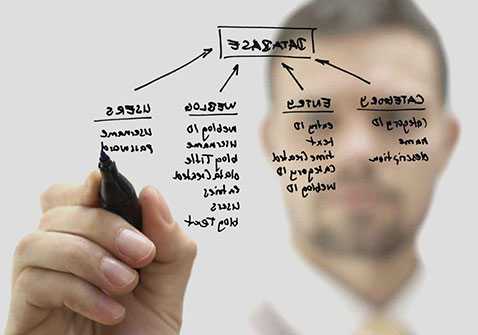 DATABASE
USERS
username
password
WEBLOG
weblog ID
username
blog Title
dateCreated
Entries
Users
blog Text
ENTRY
entry ID
text
timeCreated
Category ID
weblog ID
CATEGORY
category ID
name
description